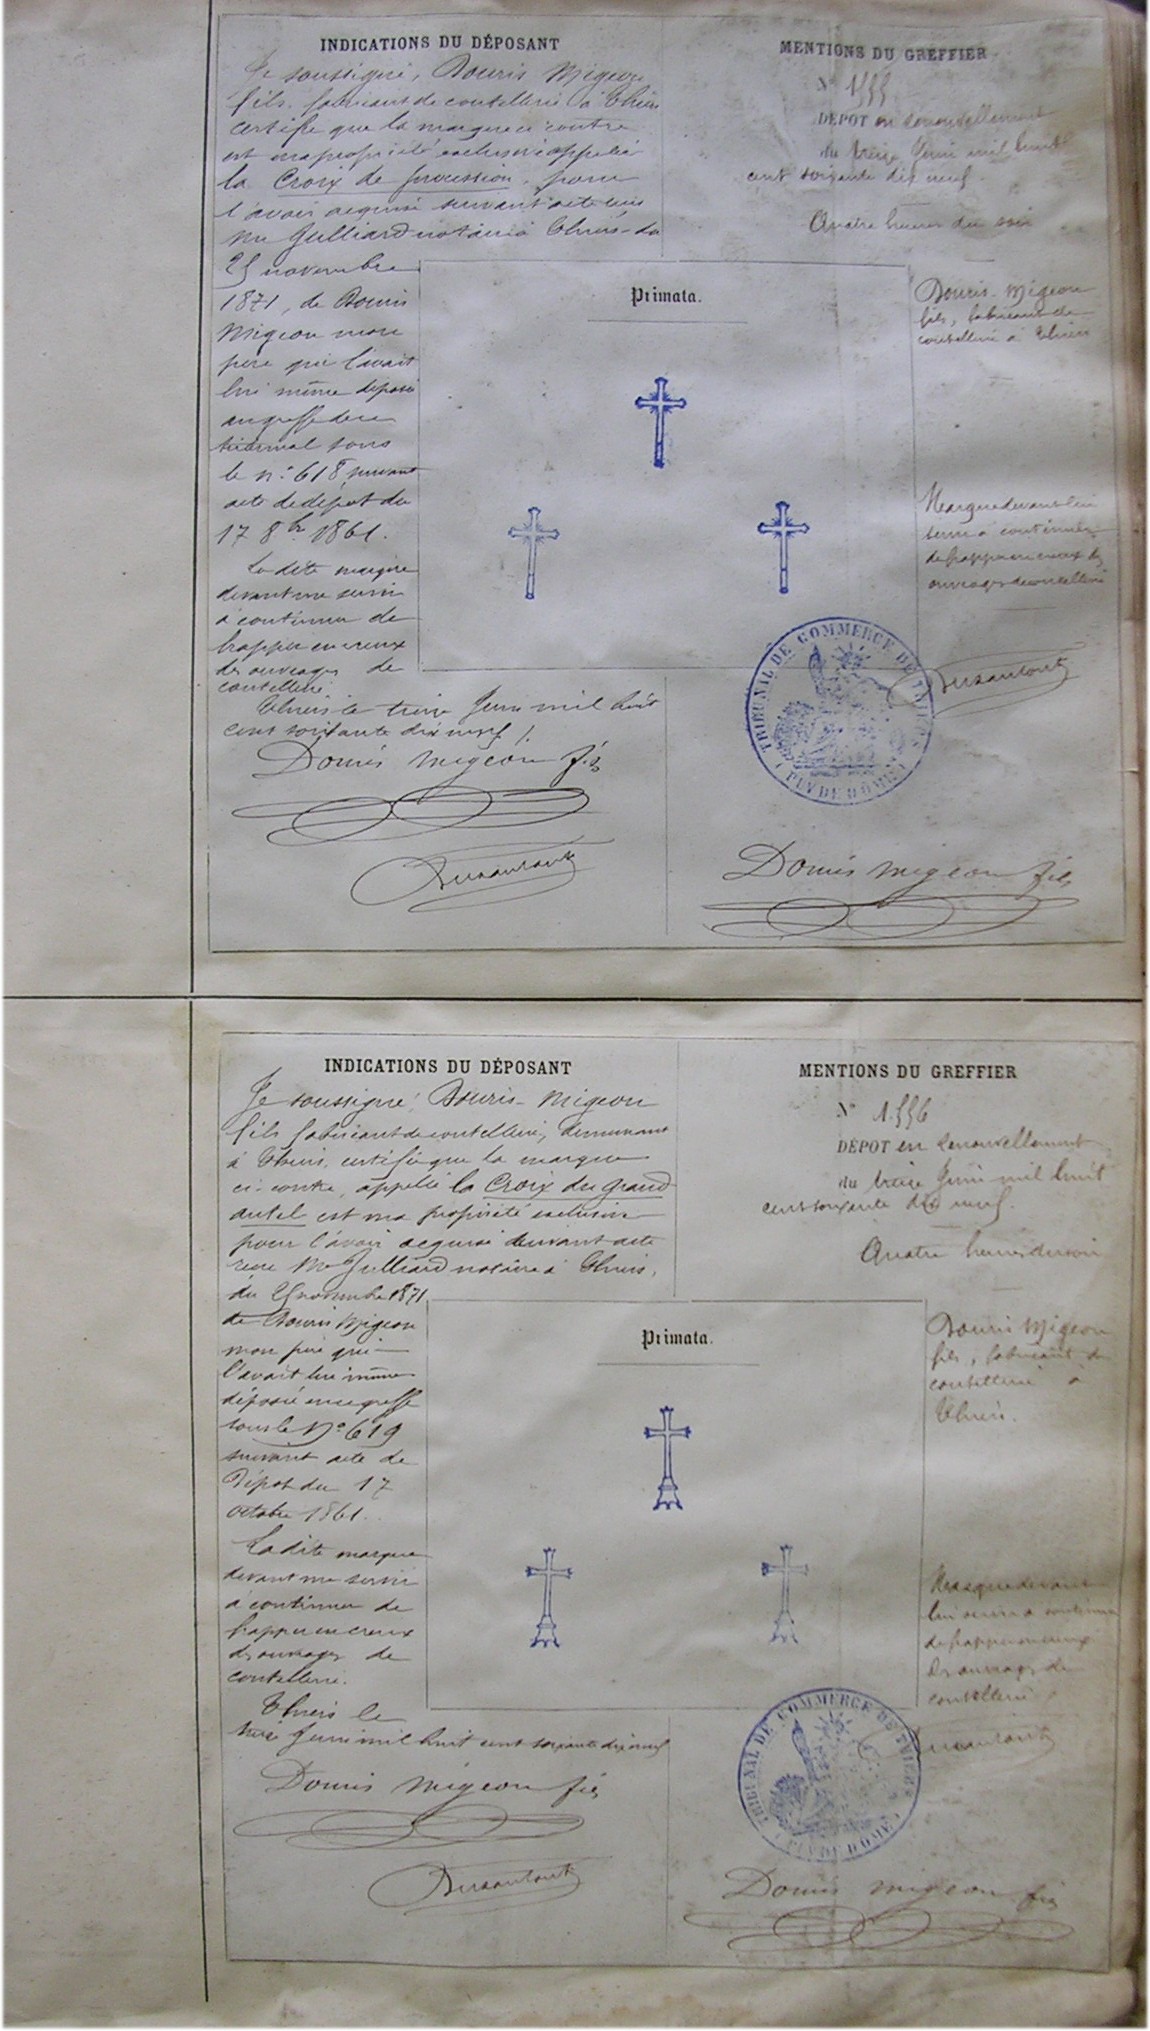 INDICATIONS DU DÉPOSANT
Je soussigné, Douris Migeon
fils, fabricant de coutellerie à Thiers
certifie que la marque ci contre
est ma propriété exclusive appelée
la Croix de procession, pour
l'avoir acquise suivant acte reçu
Me Julliard notaire à Thiers, du
25 novembre
1871, de Douris
Migeon mon
père qui l'avait
lui même déposée
au greffe de ce
tribunal sous
le n° 618 suivant
acte de dépôt du
17 8bre 1861.
La dite marque
devant me servir
à continuer de
frapper en creux
des ouvrages de
coutellerie.
Thiers le treize Juin mil huit
cent soixante dix neuf /.
Douris Migeon fils
MENTIONS DU GREFFIER
N° 1555
DÉPOT en renouvellement
du treize Juin mil huit
cent soixante dix neuf.
Quatre heures du soir
Primata.
Douris-Migeon
fils, fabricant de
coutellerie à Thiers
Marque devant lui
servir à continuer
de frapper en creux des
ouvrages de coutellerie
TRIBUNAL DE COMMERCE DE THIERS
(PUY DE DÔME)
Douris Migeon fils
INDICATIONS DU DÉPOSANT
Je soussigné, Douris-Migeon
fils fabricant de coutellerie, demeurant
à Thiers, certifie que la marque
ci-contre, appelée la Croix du Grand
autel est ma propriété exclusive
pour l'avoir acquise suivant acte
reçu Me Julliard notaire à Thiers,
du 25 novembre 1871
de Douris Migeon
mon père qui
l'avait lui même
déposée au greffe
sous le N° 619
suivant acte de
Dépôt du 17
octobre 1861.
La dite marque
devant me servir
à continuer de
frapper en creux
des ouvrages de
coutellerie.
Thiers le
treize Juin mil huit cent soixante dix neuf
Douris Migeon fils
MENTIONS DU GREFFIER
N° 1556
DÉPOT en renouvellement
du treize Juin mil huit
cent soixante dix neuf.
Quatre heures du soir
Primata.
Douris Migeon
fils, fabricant de
coutellerie à
Thiers.
Marque devant
lui servir à continuer
de frapper en creux
des ouvrages de
coutellerie
TRIBUNAL DE COMMERCE DE THIERS
(PUY DE DÔME)
Douris Migeon fils